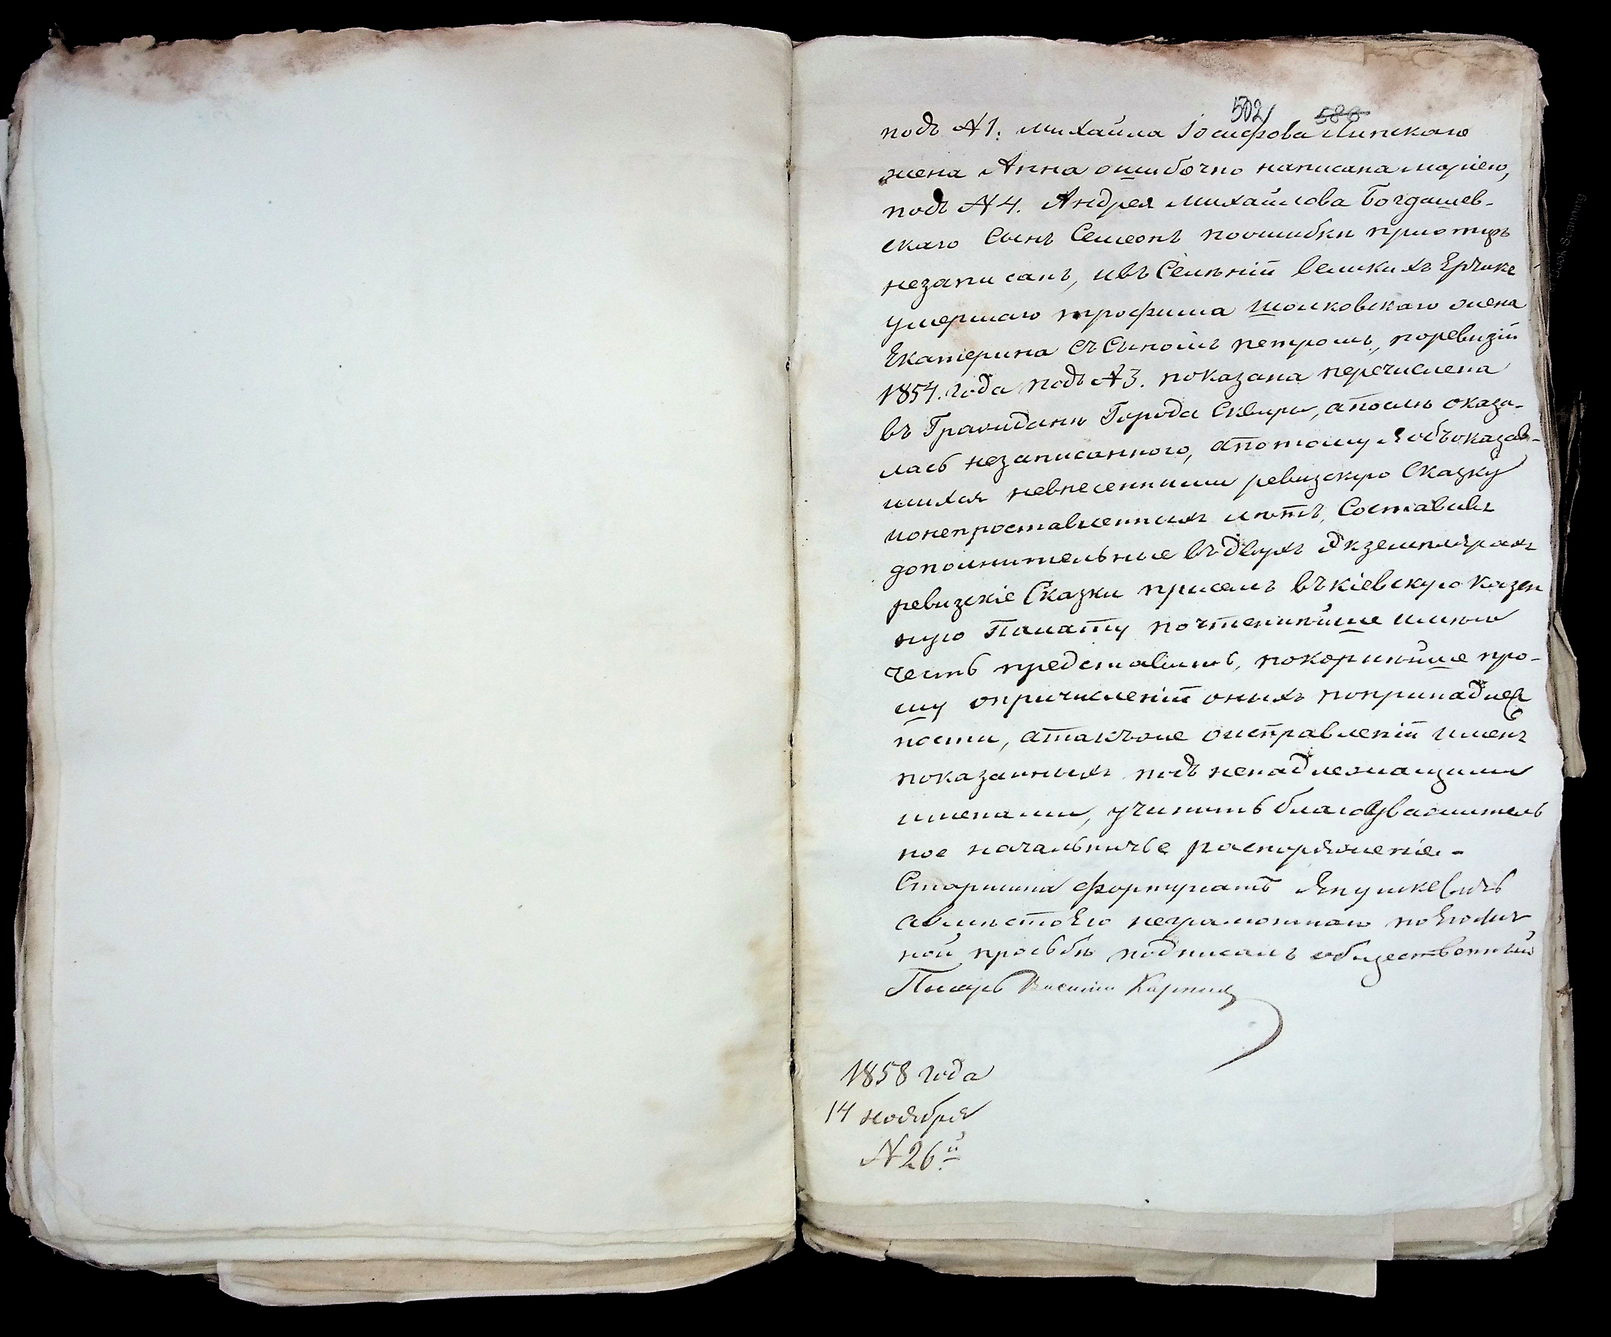 502 588
подъ №1. Михаила Іосифова Липскаго
жена Анна ошибочно написана Маріею,
подъ №4. Андрея Михайлова Богдашев-
скаго Сынъ Семеонъ поошибки приотцѣ
незаписанъ, ивъ Селѣніи великихъ Ерчике
умершаго трофима Шолковскаго жена
Екатерина съ Сыномъ петромъ, поревизіи
1854. года подъ №3. показана перечислена
въ Граждани Города Сквири, апослѣ оказа-
лась незаписанною, апотому Я объоказав-
шихся невнесенными ревизскую Сказку
ионепроставленныхъ лѣтъ, Составивъ
дополнительные въдвухъ Экземплярахъ
ревизскіе Сказки присемъ въкіевскую Казен
ную Палату почтеннѣйше имѣю
честь представить, покорнѣйше про-
шу опричисленіи оныхъ попринадлеж
ности, атакъже оисправленіи имѣнъ
показанныхъ подъ ненадлежащими
именами, учинить благоуважитель
ное начальничье распоряженіе. -
Старшина фортунатъ Янушкевичъ
авмѣсто Его неграмотнаго по Его лич
ной прозьбѣ подписалъ общественный
Писарь Василій
1858 года
14 ноября
№ 26й